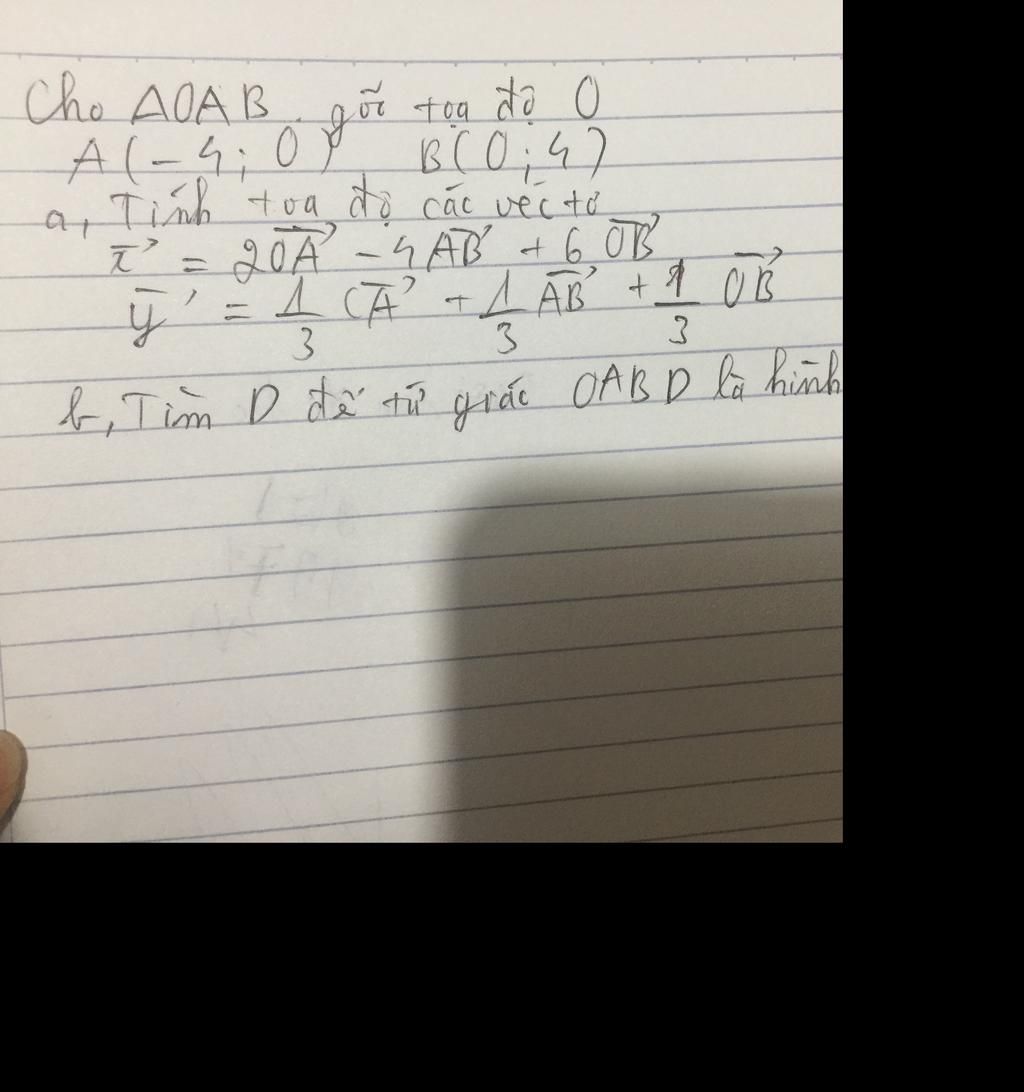 Cho ΔOAB. gốc toạ độ O
A(-4; 0) B(0; 4)
a, Tính toạ độ các véc tơ
x⃗ = 2OA⃗ - 4AB⃗ + 6OB⃗
y⃗ = 1/3 OA⃗ + 1/3 AB⃗ + 1/3 OB⃗
b, Tìm D để tứ giác OABD là hình